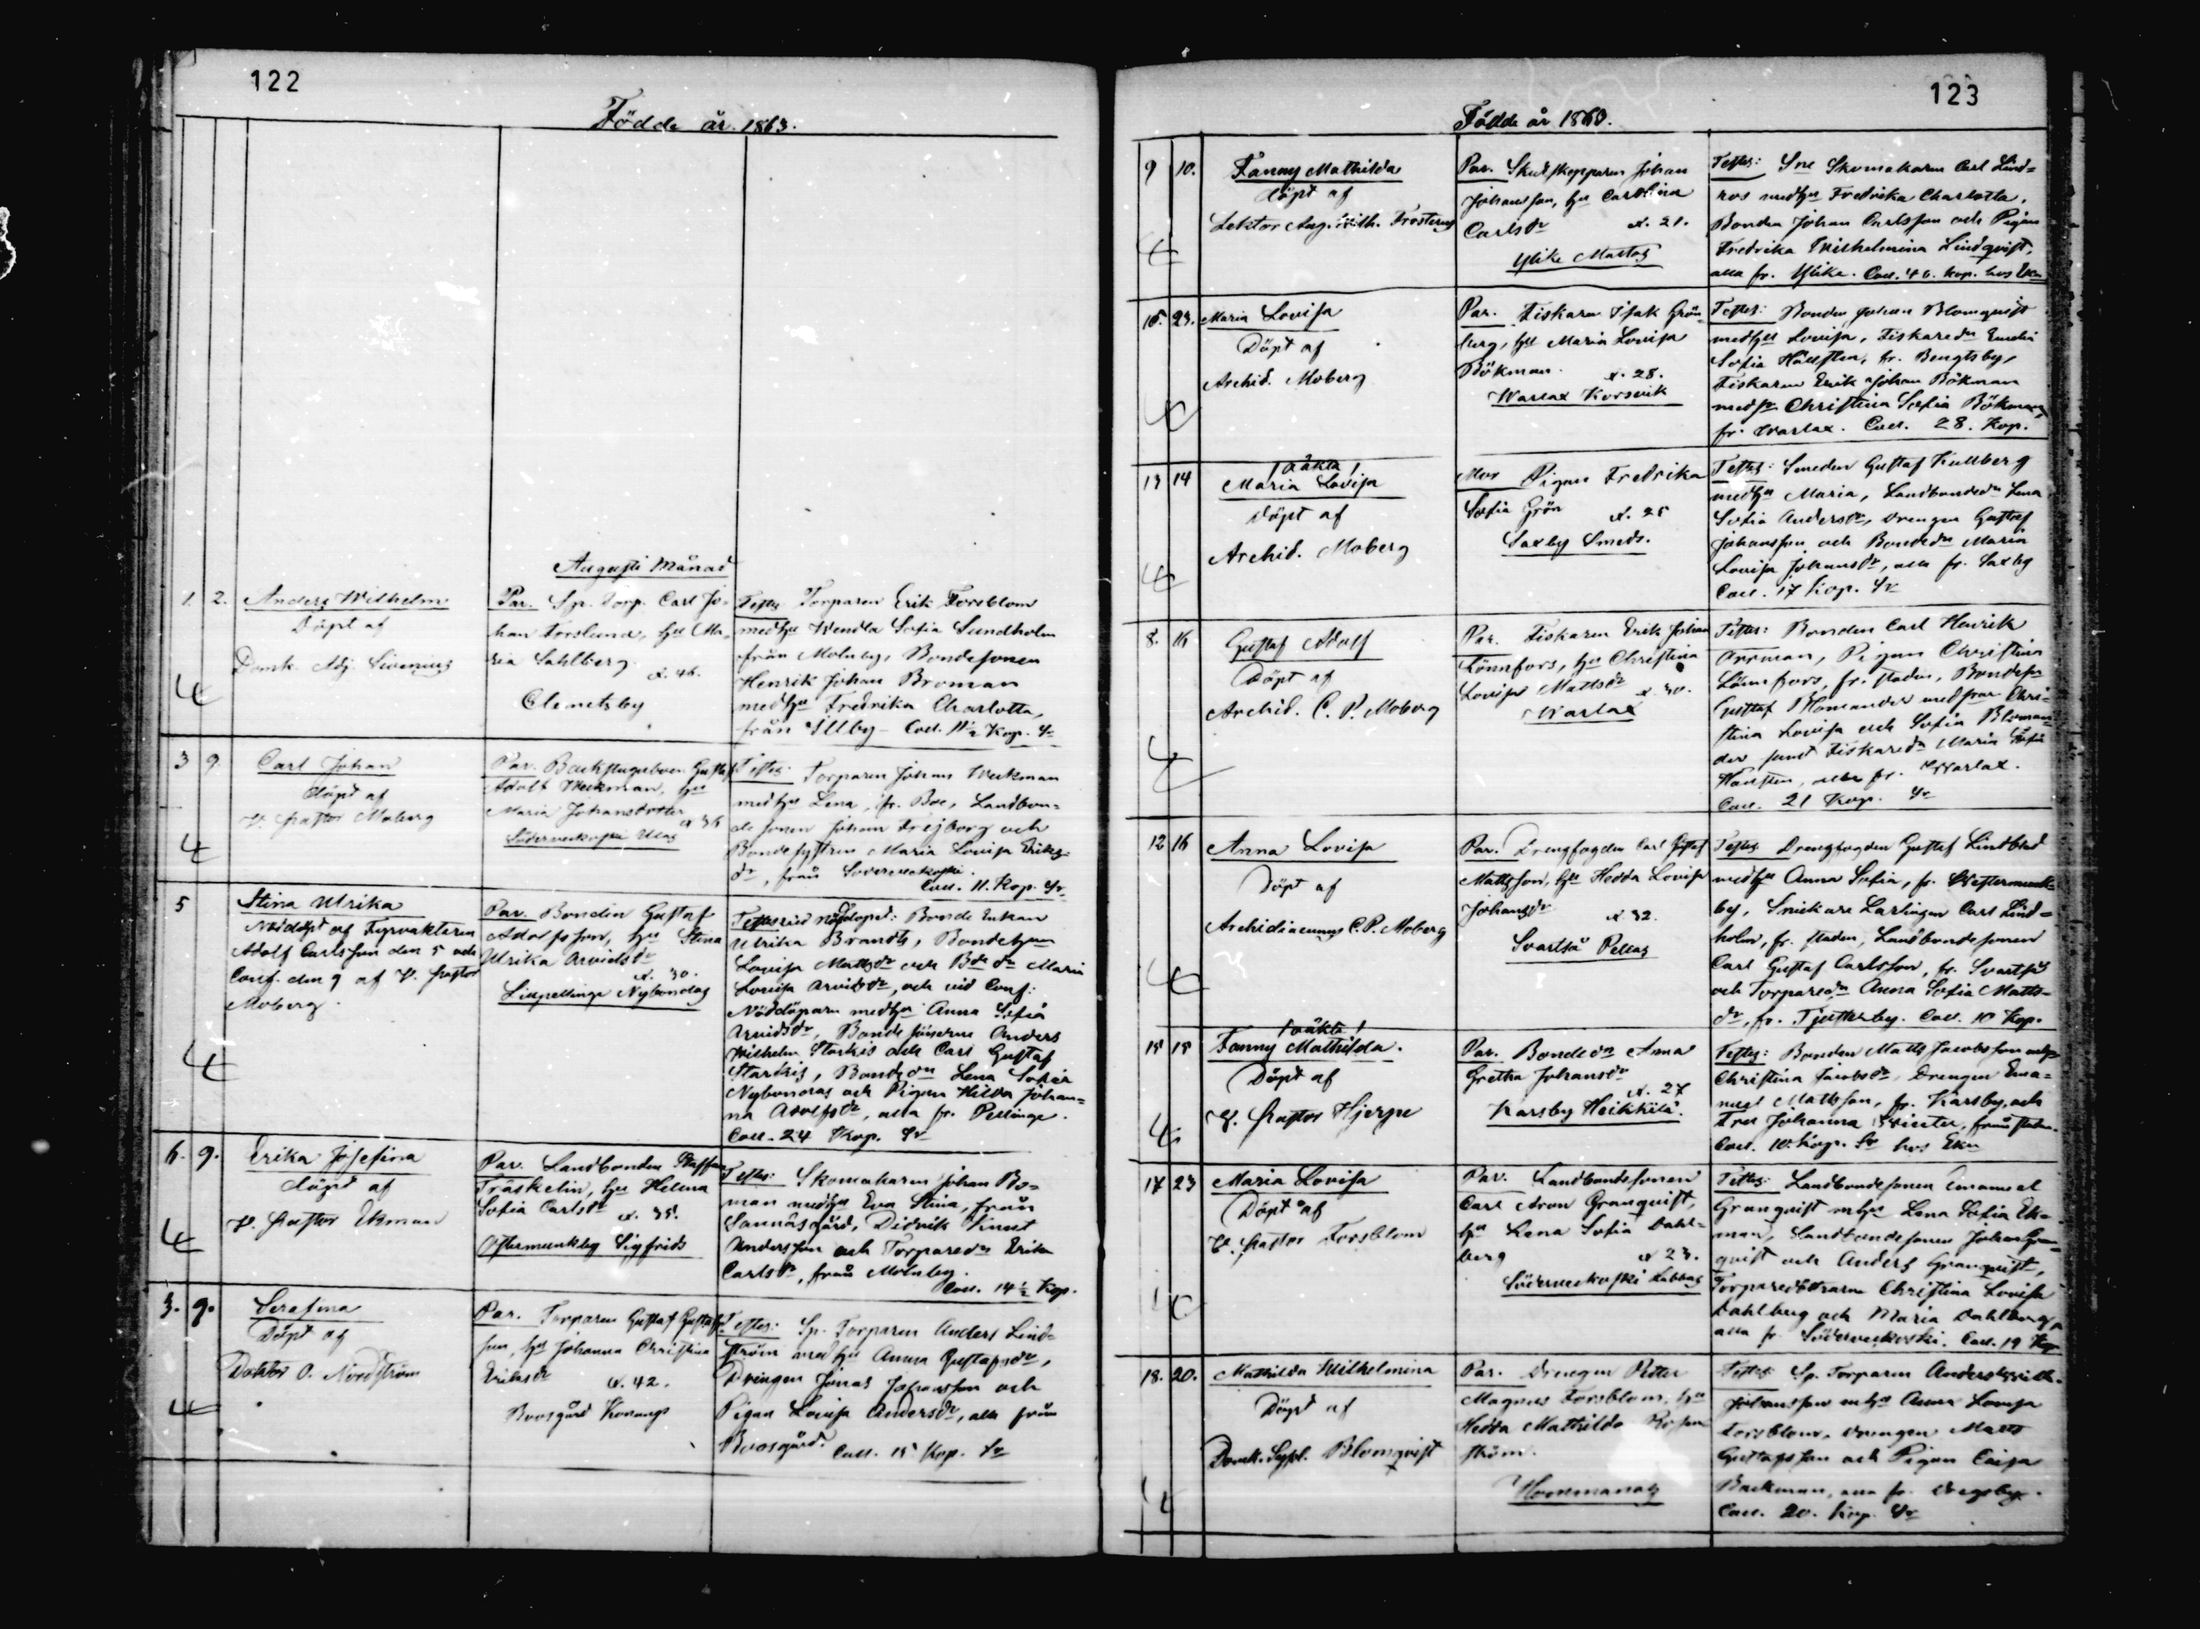 122
Födde år 1863.
Augusti Månad
1. 2. Anders Wilhelm
Döpt af
Domk. Adj. Sirenius
Par. Sp. Torp. Carl Jo-
han Forslund, hu Ma-
ria Sahlberg
æ. 46.
Clemetsby
Testes Torparen Erik Forsblom
med hu Wendla Sofia Sundholm
från Molnby, Bondesonen
Henrik Johan Broman
med hu Fredrika Charlotta,
från Illby – Coll. 11½ Kop. Sr
3 9 Carl Johan
döpt af
V. Pastor Moberg
Par. Backstugubon. Gustaf
Adolf Weckman, hu
Maria Johansdotter
æ 36
Söderveckoski
Testes: Torparen Johan Weckman
med hu Lena, fr. Boe, Landbon-
de sonen Johan Frejborg och
Bondesystren Maria Lovisa Eriks
dr, från Söderveckoski.
Coll. 11. Kop. Sr
5 Stina Ulrika
Nöddöpt af Fyrvaktaren
Adolf Carlsson den 5 och
Conf. den 9 af V. Pastor
Moberg.
Par. Bonden Gustaf
Adolfsson, hu Stina
Ulrika Arvidsdr
æ. 30.
Lillpellinge Nybondas
Testes vid nöddopet: Bonde Enkan
Ulrika Brandts, Bondehun
Lovisa Mattsdr och Bde dr Maria
Lovisa Arvidsdr, och vid Conf:
Nöddöparn med hu Anna Sofia
Arvidsdr, Bondesönerne Anders
Wilhelm Starkis och Carl Gustaf
Starkis, Bondedn Lena Sofia
Nybondas och Pigan Hilda Johan-
na Adolfsdr, alla fr. Pellinge.
Coll. 24 Kop. Sr
6. 9. Erika Josefina
döpt af
V. Pastor Ekman
Par. Landbonden Staffan
Träskelin, hu Helena
Sofia Carlsdr æ. 35.
Östermunkby Sigfrids
Testes: Skomakaren Johan Bo-
man med hu Eva Stina, från
Sannäsgård, Didrik Knut
Andersson och Torparedn Erika
Carlsdr, från Molnby.
Coll. 14½ Kop.
3. 9. Serafina
Döpt af
Doktor O. Nordström
Par. Torparen Gustaf Gustafs-
son, hu Johanna Christina
Eriksdr æ. 42.
Boosgård
Testes: Sp. Torparen Anders Lind-
ström med hu Anna Gustafsdr,
Drengen Jonas Johansson och
Pigan Lovisa Andersdr, alla från
Boosgård. Coll. 15 Kop. Sr
123
Födde år 1863.
9 10. Fanny Mathilda
Döpt af
Lektor Aug. Wilh. Frosterus
Par. Skutskepparen Johan
Johansson, hu Carolina
Carlsdr æ. 21.
Ylike Mattas
Testes: Skomakaren Carl Lind-
ros med hu Fredrika Charlotta,
Bonden Johan Carlsson och Pigan
Fredrika Wilhelmina Lindqvist,
alla fr. Ylike. Coll. 46. kop. hos Ekn
15. 23. Maria Lovisa
Döpt af
Archid. Moberg
Par. Fiskaren Isak Grön-
berg, hu Maria Lovisa
Bökman. æ. 28.
Warlax Korsvik
Testes: Bonden Johan Blomqvist
med hu Lovisa, Fiskaredn Emelie
Sofia Hällsten, fr. Bengtsby,
Fiskaren Erik Johan Bökman
med sr Christina Sofia Bökman,
fr. Warlax. Coll. 28. Kop.
13 14 /oäkta/
Maria Lovisa
Döpt af
Archid. Moberg
Mor Pigan Fredrika
Sofia Grön æ. 25
Saxby Smeds.
Testes: Smeden Gustaf Kullberg
med hu Maria, Landbondedn Lena
Sofia Andersdr, Drengen Gustaf
Johansson och Bondedn Maria
Lovisa Johansdr, alla fr. Saxby
Coll. 17 Kop. Sr
8. 16 Gustaf Adolf
Döpt af
Archid. C. P. Moberg
Par. Fiskaren Erik Johan
Lönnfors, hu Christina
Lovisa Mattsdr æ. 30.
Warlax
Testes: Bonden Carl Henrik
Orrman, Pigan Christina
Lönnfors, fr. staden, Bondesn
Gustaf Blomander med sror Chri-
stina Lovisa och Sofia Bloman-
der samt Fiskaredn Maria Sofia
Hällsten, alla fr. Warlax.
Coll. 21 Kop. Sr
12 16 Anna Lovisa
Döpt af
Archidiaconus C. P. Moberg
Par. Drengfogden Carl Gustaf
Mattsson, hu Hedda Lovisa
Johansdr æ. 32.
Svartså Pellas
Testes Drengfogden Gustaf Lindblad
med hu Anna Sofia, fr. Westermunk-
by, Snickare Lärlingen Carl Lind-
holm, fr. staden, Landbondesonen
Carl Gustaf Carlsson, fr. Svartså
och Torparedn Anna Sofia Matts-
dr, fr. Tjusterby. Coll. 10 Kop.
15 15 /oäkta/
Fanny Mathilda.
Döpt af
V. Pastor Hjerpe
Par. Bondedn Anna
Gretha Johansdr
æ. 27
Karsby Heikkilä.
Testes: Bonden Matts Jacobsson och
Christina Jacobsdr, Drengen Ema-
nuel Mattsson, fr. Karsby, och
Fru Johanna, från staden.
Coll. 10. Kop. Sr hos Ekn
17 23 Maria Lovisa
Döpt af
V. Pastor Forsblom
Par. Landbondesonen
Carl Aron Granqvist,
hu Lena Sofia Dahl-
berg æ 23.
Söderveckoski Labbas
Testes: Landbondesonen Emanuel
Granqvist m hu Lena Sofia Ek-
man, Landbondesonen Johan Gran-
qvist och Anders Granqvist,
Torparedöttrarne Christina Lovisa
Dahlberg och Maria Dahlberg,
alla fr. Söderveckoski. Coll. 19 Kop
18. 20. Mathilda Wilhelmina
Döpt af
Domk. Syssl. Blomqvist
Par. Drengen Petter
Magnus Forsblom, hu
Hedda Mathilda Rosen
ström.
Hommanas
Testes: Sp. Torparen Anders Wilh.
Johansson m hu Anna Lovisa
Forsblom, Drengen Matts
Gustafsson och Pigan Caisa
Backman, alla fr. Drägsby.
Coll. 20. Kop. Sr